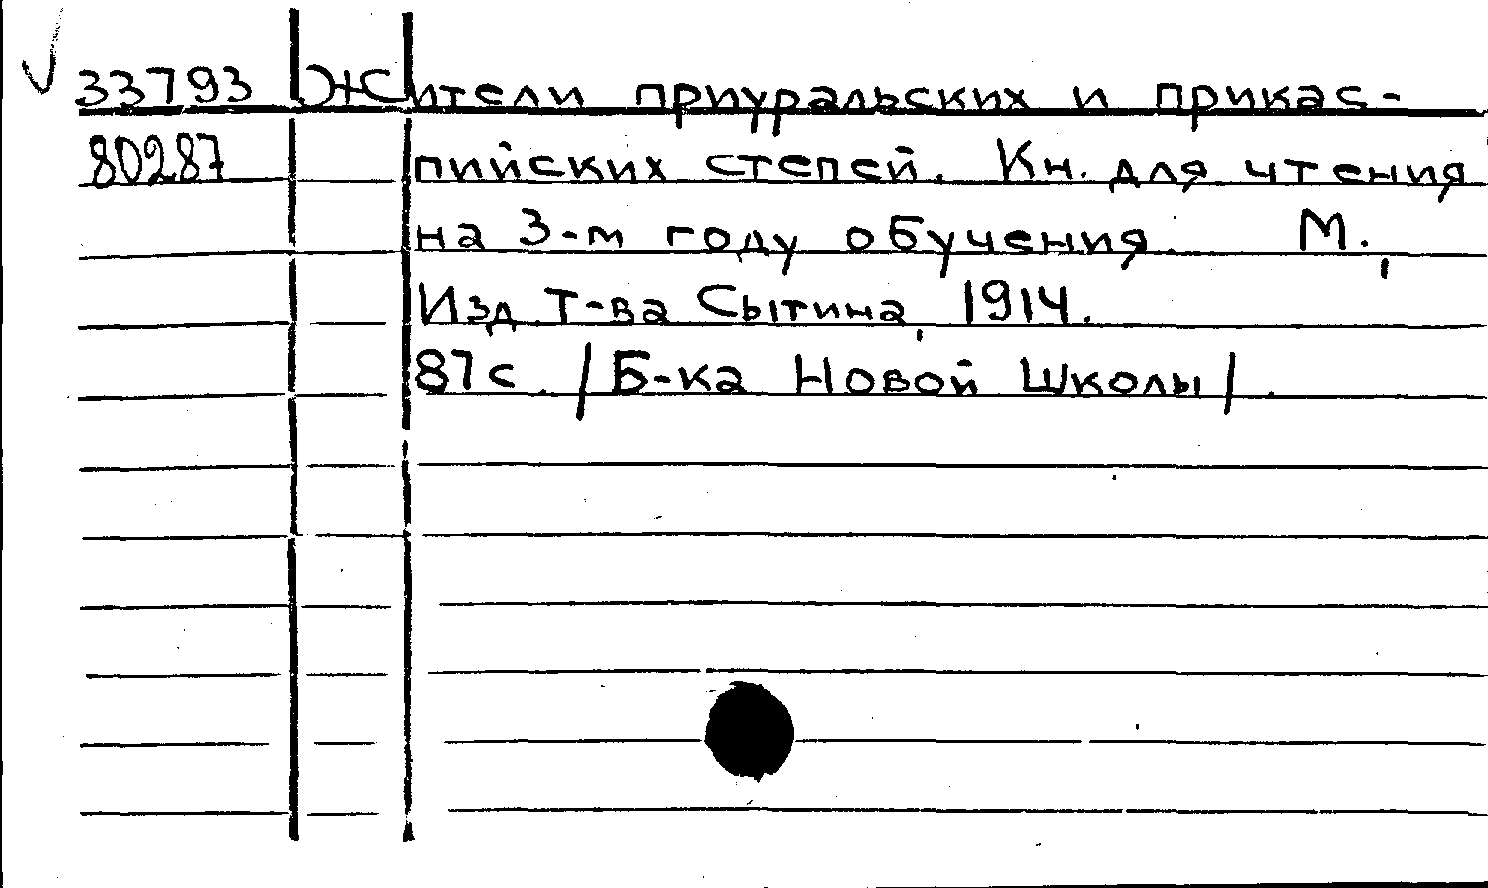 33793 Жители приуральских и прикас-
80287 пийских степей. Кн. для чтения
на 3-м году обучения. М.,
Изд. Т-ва Сытина, 1914.
87 с. /Б-ка Новой Школы/.